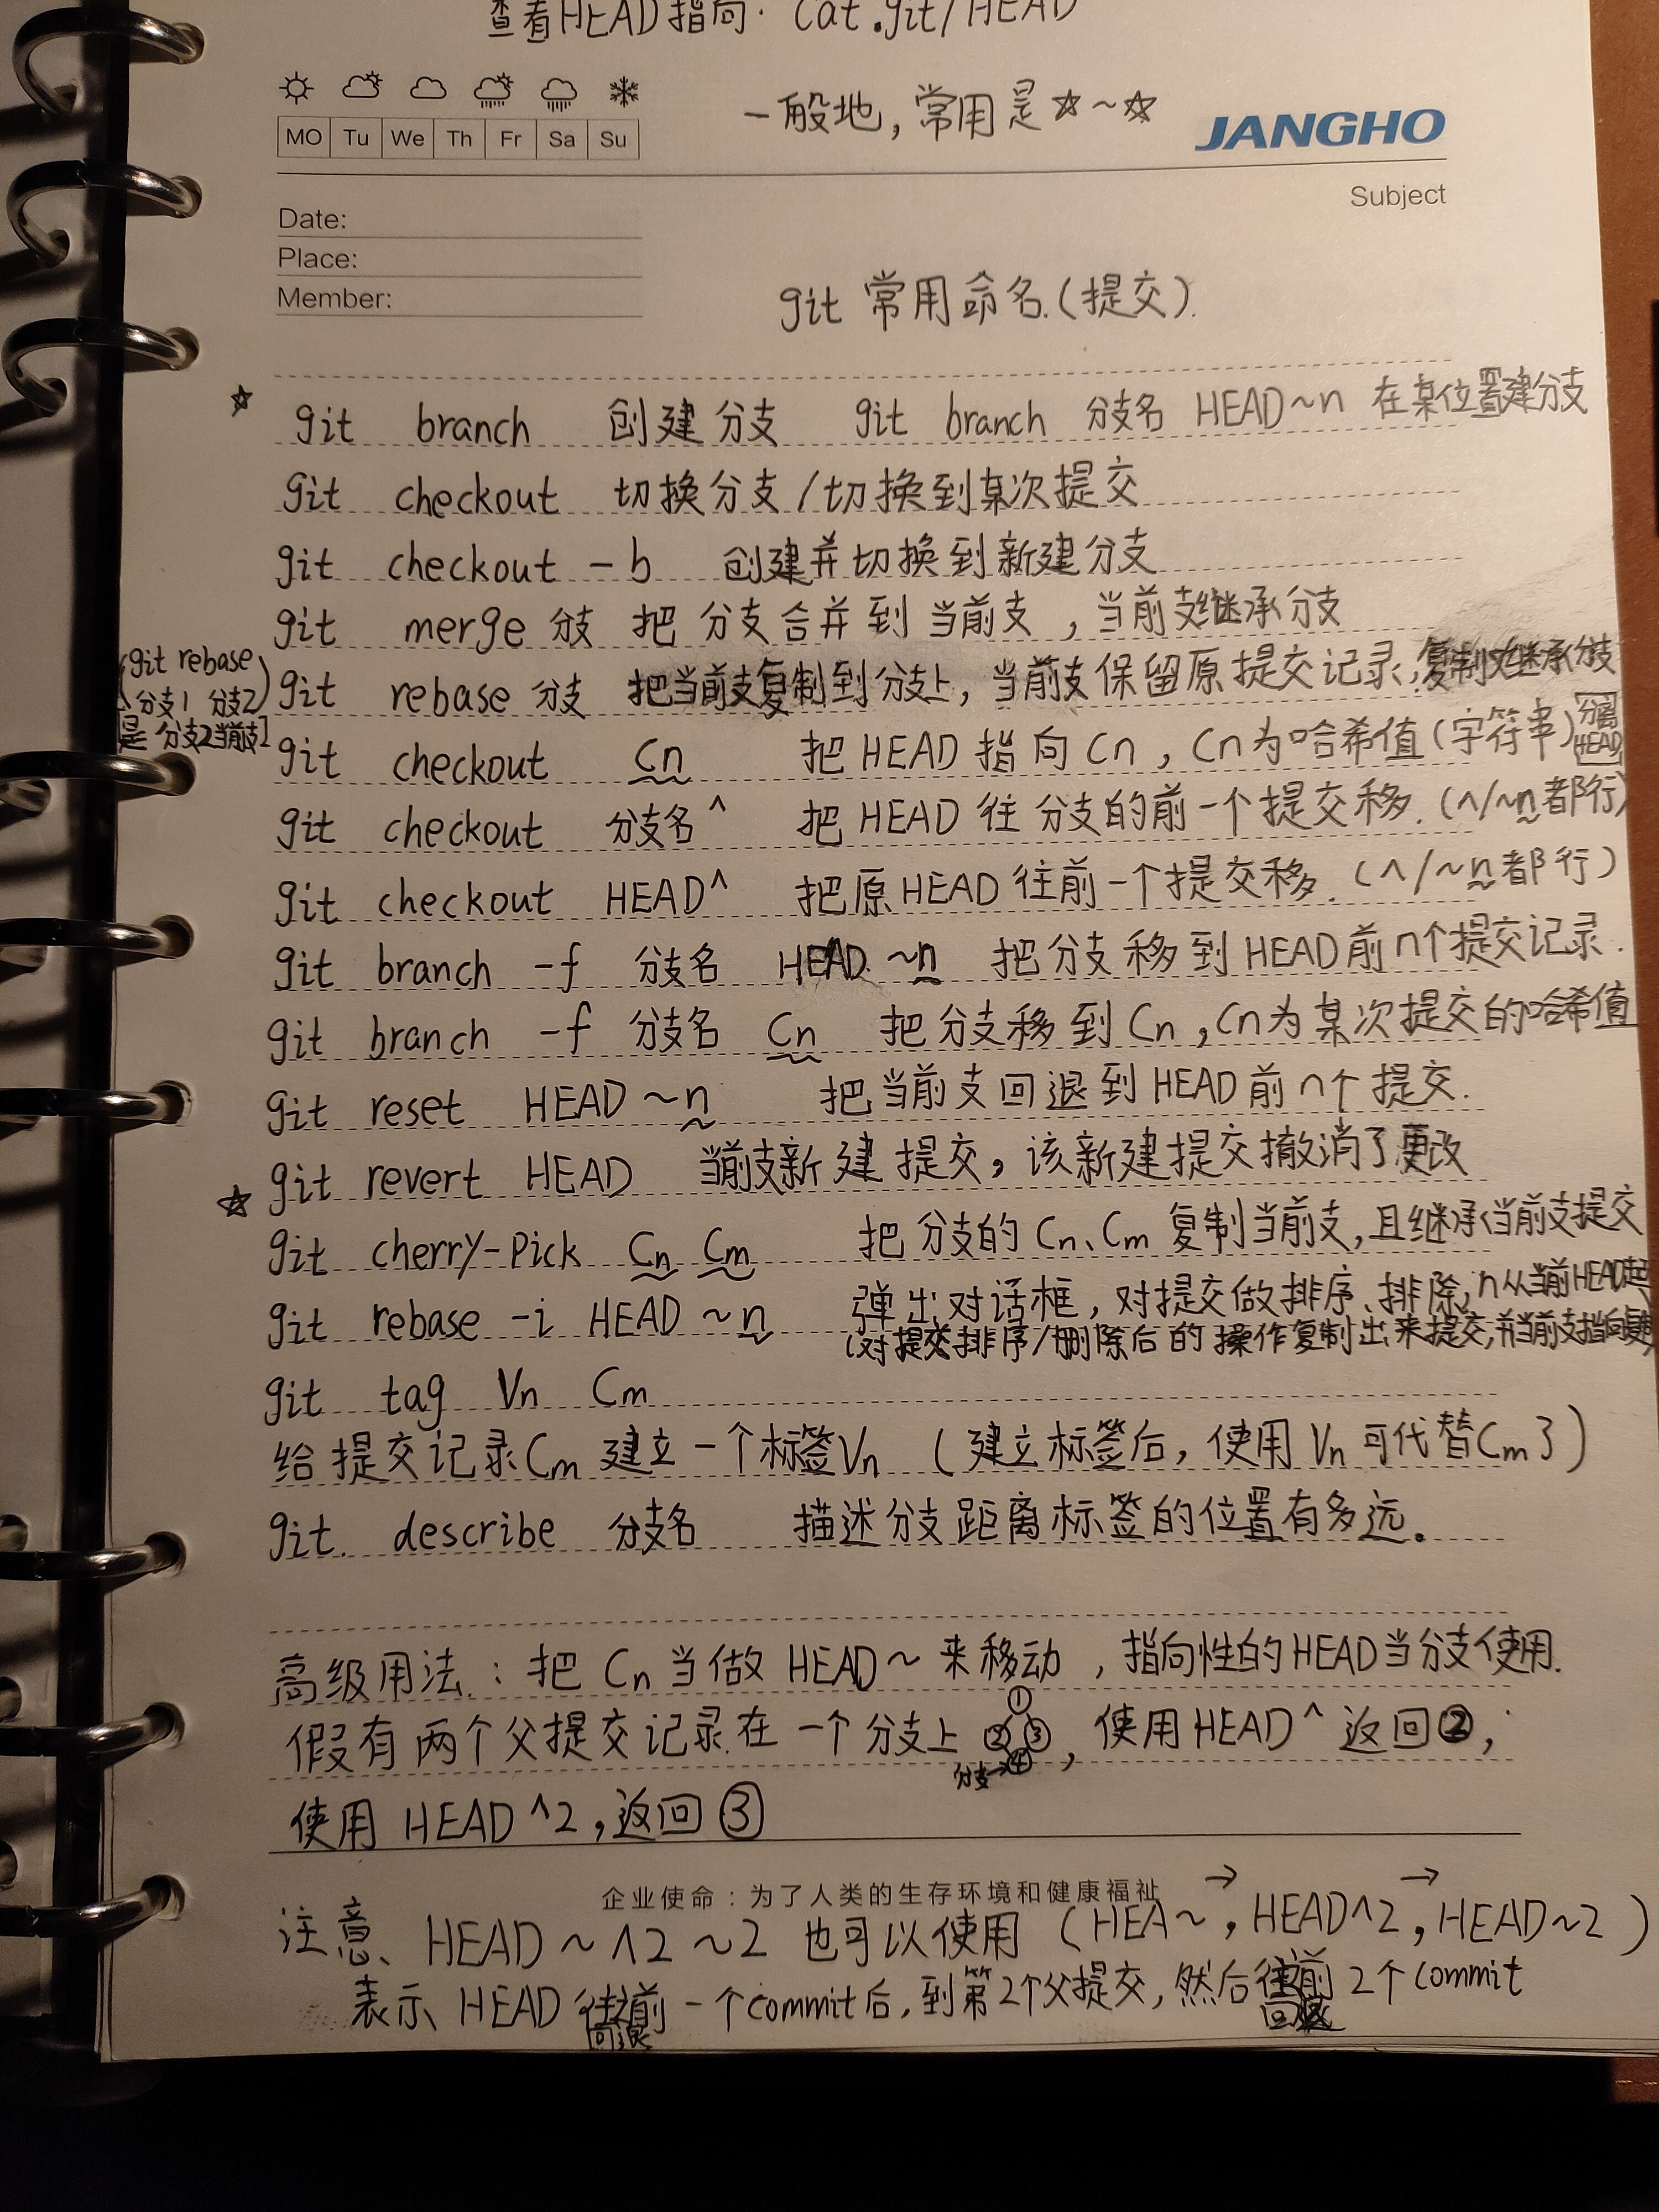 查看HEAD指向. cat .git/HEAD
一般地, 常用是☆~☆
JANGHO
MO Tu We Th Fr Sa Su
Subject
Date:
Place:
Member:
git 常用命名.(提交).
☆ git branch 创建分支 git branch 分支名 HEAD~n 在某位置建分支
git checkout 切换分支/切换到某次提交
git checkout -b 创建并切换到新建分支
git merge 分支 把 分支合并到 当前支, 当前支继承分支
(git rebase 分支1 分支2)
是 分支2当前支]
git rebase 分支 把当前支复制到分支上, 当前支保留原提交记录,复制支继承分支
git checkout Cn 把 HEAD 指向 Cn, Cn为哈希值(字符串)
分离HEAD
git checkout 分支名^ 把 HEAD 往 分支的前一个提交移. (^/~n都行)
git checkout HEAD^ 把原HEAD往前一个提交移. (^/~n都行)
git branch -f 分支名 HEAD ~n 把分支移到HEAD前n个提交记录.
git branch -f 分支名 Cn 把分支移到Cn,Cn为某次提交的哈希值
git reset HEAD ~n 把当前支回退到HEAD前n个提交.
git revert HEAD 当前支新建提交, 该新建提交撤消了更改
☆ git cherry-Pick Cn Cm 把分支的Cn、Cm复制当前支,且继承当前支提交
git rebase -i HEAD ~n 弹出对话框, 对提交做排序、排除, n从当前HEAD起
(对提交排序/删除后的操作复制出来提交,并当前支指向
git tag Vn Cm
给提交记录Cm 建立一个标签Vn (建立标签后, 使用Vn可代替Cm了)
git. describe 分支名 描述分支距离标签的位置有多远。
高级用法.: 把 Cn当做 HEAD~ 来移动, 指向性的HEAD当分支使用.
假有两个父提交记录.在一个分支上 ① ② ③ ④ 分支→, 使用HEAD^ 返回②,
使用 HEAD ^2, 返回③
企业使命:为了人类的生存环境和健康福祉
注意、HEAD~^2~2 也可以使用 (HEA~→, HEAD^2→, HEAD~2)
表示 HEAD 往前 一个commit后, 到第2个父提交, 然后往前 2个commit